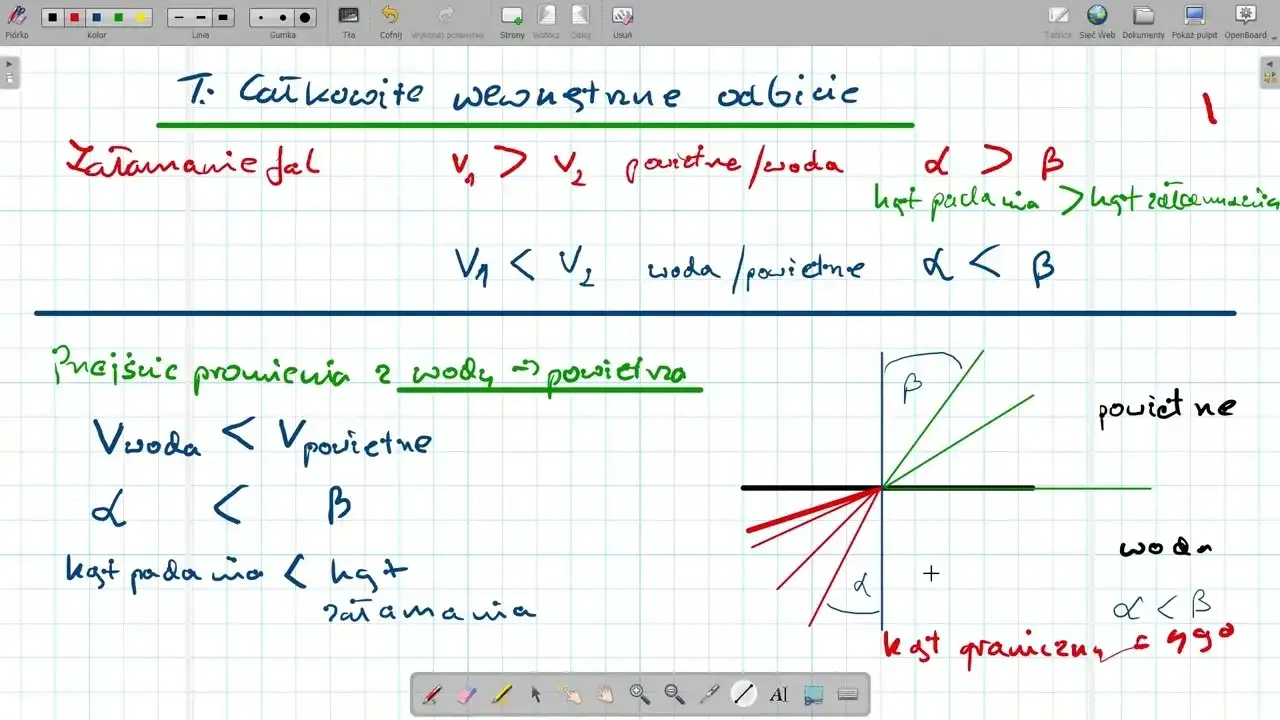 Piórko
Kolor
Linia
Gumka
Tła
Cofnij
Wykonaj ponownie
Strony
Wstecz
Dalej
Usuń
Tablica
Sieć Web
Dokumenty
Pokaż pulpit
OpenBoard
T: Całkowite wewnętrzne odbicie
1
Załamanie fal V1 > V2 powietrze/woda α > β
kąt padania > kąt załamania
V1 < V2 woda/powietrze α < β
Przejście promienia z wody → powietrza
β
powietrze
Vwoda < Vpowietrze
α < β
woda
kąt padania < kąt
załamania
α
α < β
kąt graniczny = 49°
AI